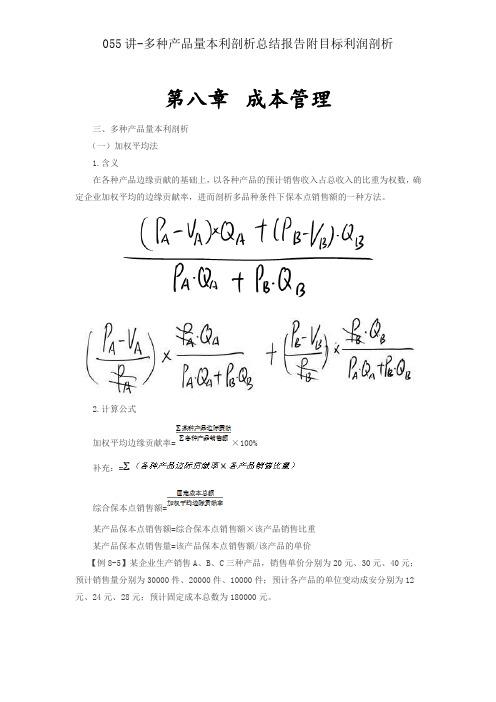 055讲-多种产品量本利剖析总结报告附目标利润剖析
第八章 成本管理
三、多种产品量本利剖析
(一)加权平均法
1.含义
在各种产品边缘贡献的基础上,以各种产品的预计销售收入占总收入的比重为权数,确
定企业加权平均的边缘贡献率,进而剖析多品种条件下保本点销售额的一种方法。
(PA-VA)×QA+(PB-VB)·QB
PA·QA+PB·QB
(PA-VA/PA)×PA·QA/PA·QA+PB·QB+(PB-VB/PB)×PB·QB/PA·QA+PB·QB
2.计算公式
加权平均边缘贡献率=Σ某种产品边际贡献/Σ各种产品销售额×100%
补充:=Σ(各种产品边际贡献率×各产品销售比重)
综合保本点销售额=固定成本总额/加权平均边际贡献率
某产品保本点销售额=综合保本点销售额×该产品销售比重
某产品保本点销售量=该产品保本点销售额/该产品的单价
【例8-5】某企业生产销售A、B、C三种产品,销售单价分别为20元、30元、40元;
预计销售量分别为30000件、20000件、10000件;预计各产品的单位变动成安分别为12
元、24元、28元;预计固定成本总数为180000元。